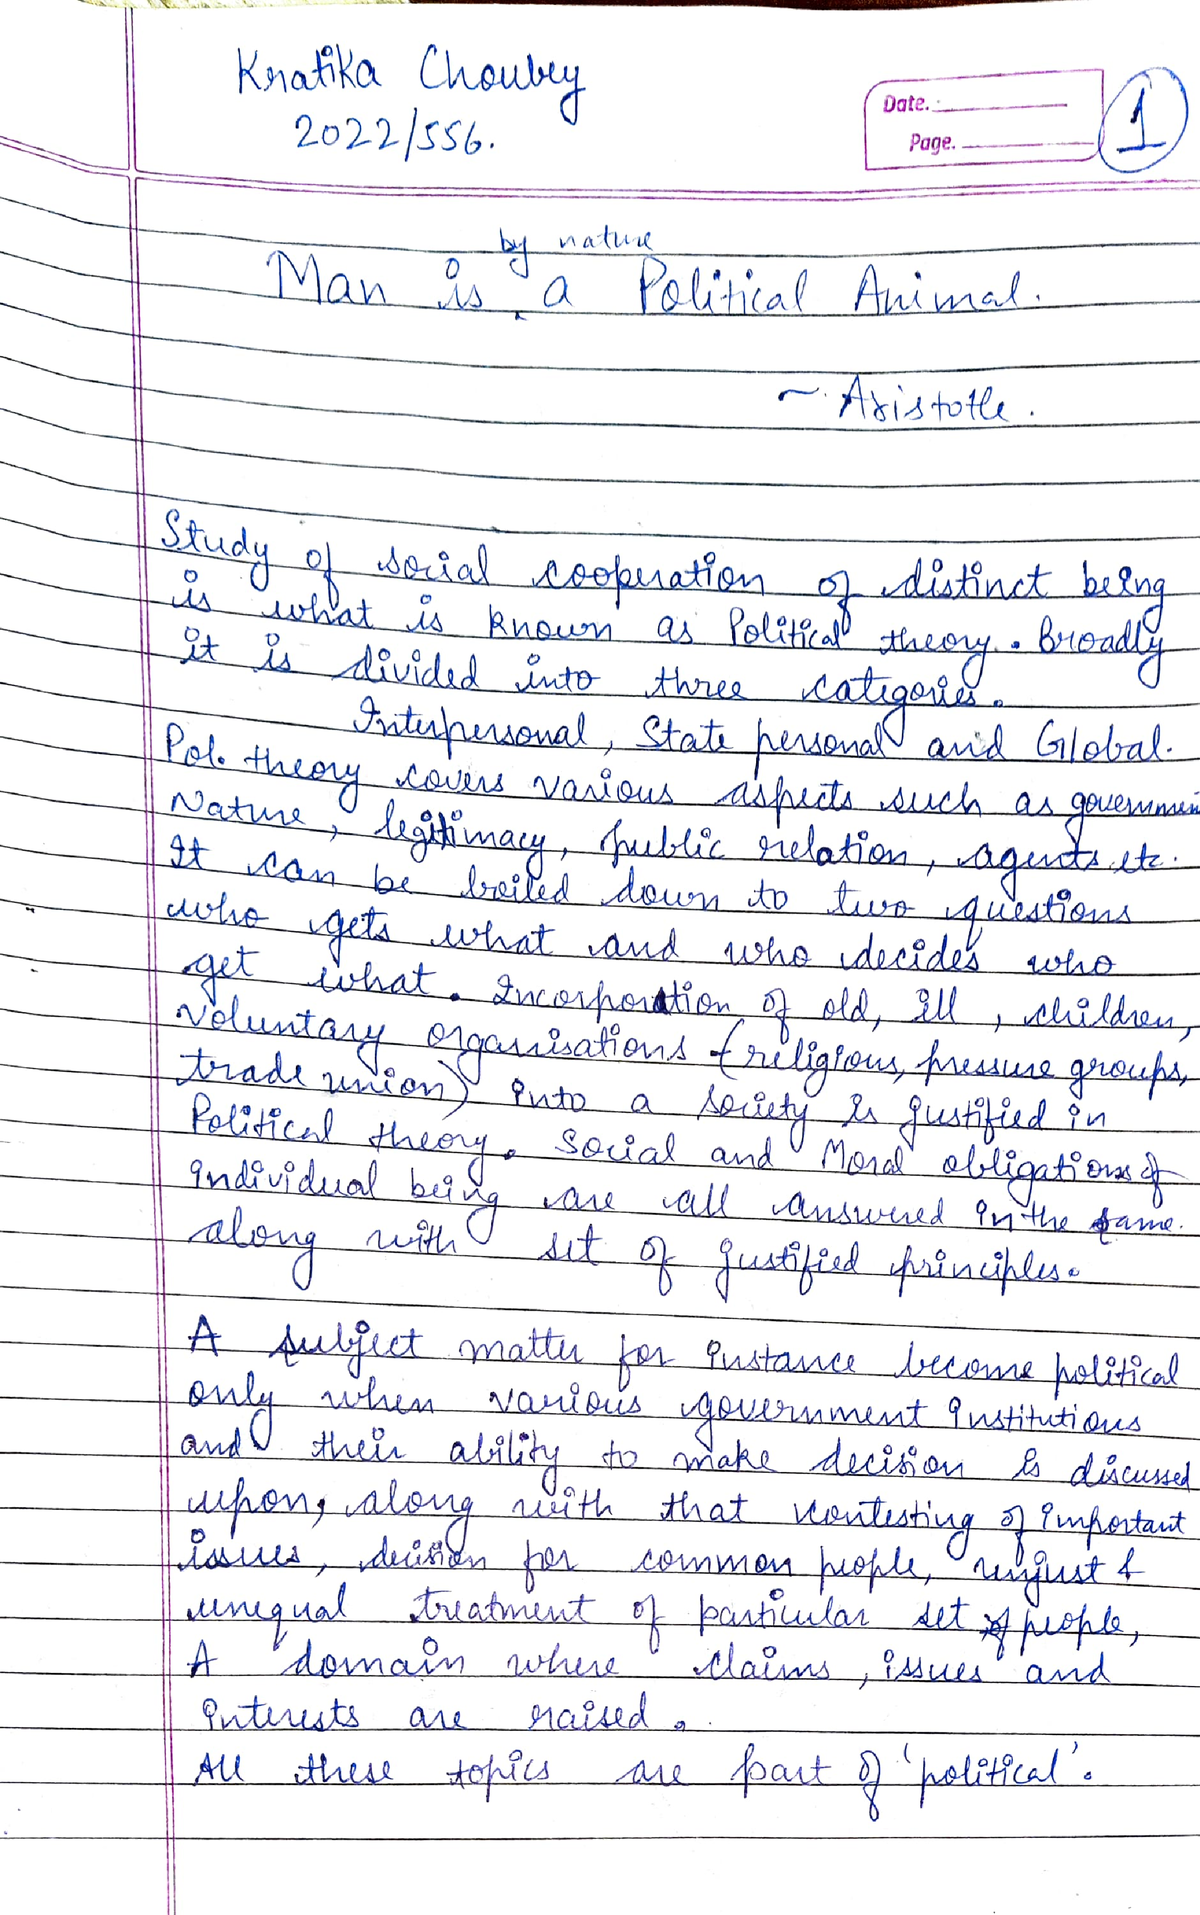 Kratika Choubey
2022/556.
Date.
Page.
1
by nature
Man is a Political Animal.
~ Aristotle.
Study of social cooperation of distinct being
is what is known as Political theory. Broadly
it is divided into three categories.
Interpersonal, State personal and Global.
Pol. theory covers various aspects such as governmen
Nature, legitimacy, public relation, agents etc.
It can be boiled down to two questions
who gets what and who decides who
get what. Incorporation of old, ill, children,
voluntary organisations (religious, pressure groups,
trade union) into a society is justified in
Political theory. Social and Moral obligations of
individual being are all answered in the same.
along with set of justified principles.
A subject matter for instance become political
only when various government institutions
and their ability to make decision is discussed
upon, along with that contesting of important
issues, decision for common people, unjust &
unequal treatment of particular set of people,
A domain where claims, issues and
interests are raised.
All these topics are part of 'political'.